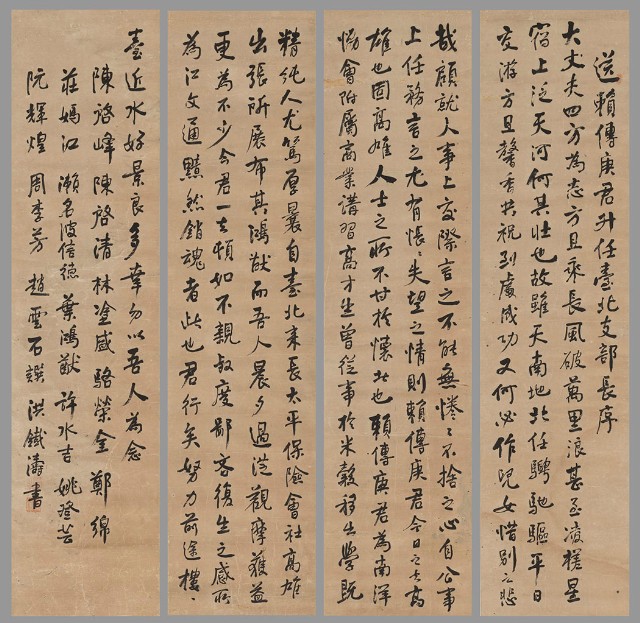 送賴傳庚君升任臺北支部長序
大丈夫四方為志方且乘長風破萬里浪甚至凌槎星
宿上泛天河何其壯也故雖天南地北任騁馳驅平日
交游方且馨香共祝到處成功又何必作兒女惜別之悲
哉顧就人事上交際言之不能無惓〻不捨之心自公事
上任務言之尤有悵〻失望之情則賴傳庚君今日之去高
雄也固高雄人士之所不甘於懷也賴傳庚君為南洋
協會附屬商業講習高才生曾從事於米穀移出學既
精純人尤篤厚曩自臺北來長太平保險會社高雄
出張所展布其鴻猷而吾人晨夕過從觀摩獲益
更為不少今君一去頓如不親叔度鄙吝復生之感所
為江文通黯然銷魂者此也君行矣努力前途樓〻
臺近水好景良多幸勿以吾人為念
陳啓峰 陳啓清 林塗盛 駱榮金 鄭綿
莊媽江 瀨名波信德 葉鴻猷 許水吉 姚登芸
阮輝煌 周李芳 趙雲石譔 洪鐵濤書